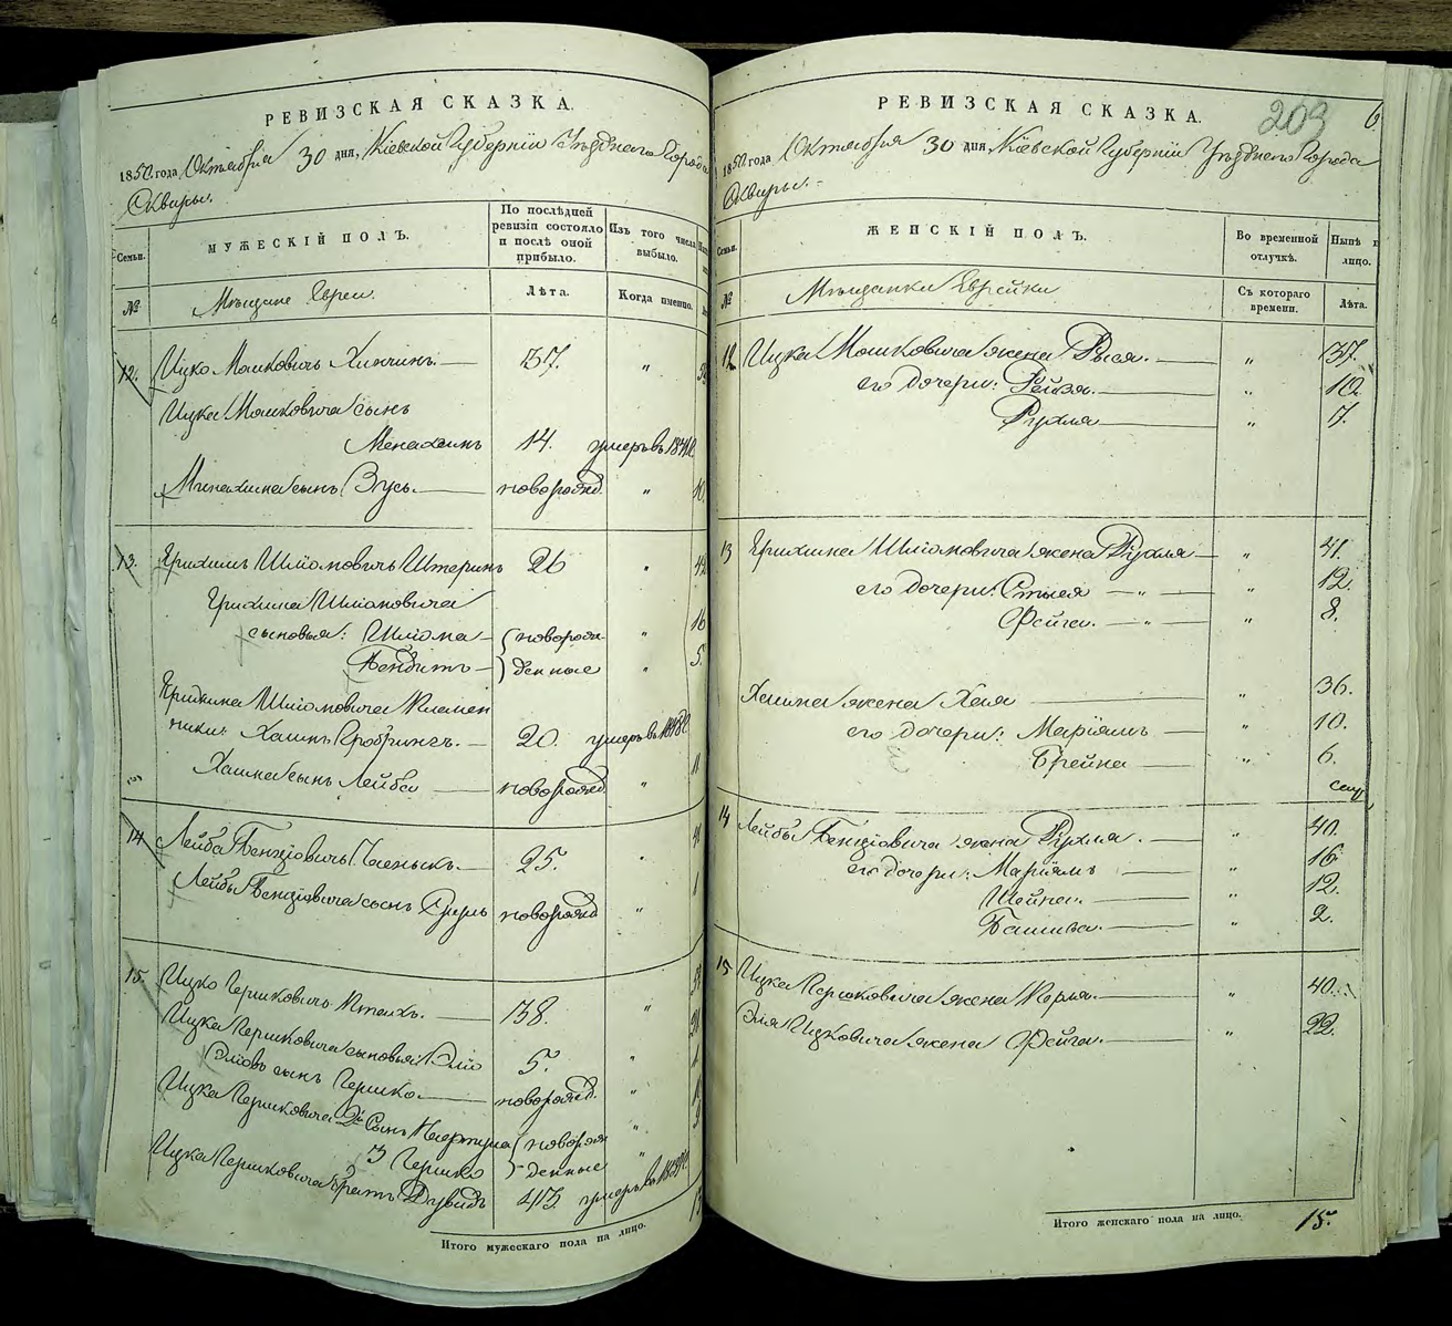 РЕВИЗСКАЯ СКАЗКА.
1850 года Октября 30 дня, Кіевской Губерніи Уѣзднаго Города
Сквиры.
Семьи.
МУЖЕСКІЙ ПОЛЪ.
По послѣдней
ревизіи состояло
и послѣ оной
прибыло.
Изъ того числа
выбыло.
№
Мѣщане Евреи.
Лѣта.
Когда именно.
12. Ицко Мошковичъ 37. „
Ицка Мошковича сынъ
Менахимъ 14. умеръ въ
Минахима сынъ Зусь. новорожд. „
13. Ерихимъ Шліомовичъ Штеринъ 26 „
Ерихима Шліомовича
сыновья: Шліома новорож- „ 16
Бендитъ денные „ 5.
Ерихима Шліомовича племен
ники: Хаимъ 20. умеръ въ
Хаима сынъ Лейба новорожд. „ 11
14. Лейба Бенціовичъ 25. „
Лейбы Бенціовича сынъ новорожд „
15. Ицко Гершковичъ 38. „
Ицка Гершковича сыновья: Эліо 5. „
Эліовъ сынъ Гершко. новорожд. „
Ицка Гершковича 2й Сынъ новорож „
3 Гершко денные „
Ицка Гершковича братъ Дувидъ 43. умеръ въ
Итого мужескаго пола на лицо.
РЕВИЗСКАЯ СКАЗКА.
203
6
1850 года Октября 30 дня, Кіевской Губерніи Уѣзднаго Города
Сквиры.
Семьи.
ЖЕНСКІЙ ПОЛЪ.
Во временной
отлучкѣ.
Нынѣ н
лицо.
№
Мѣщанки Еврейки
Съ котораго
времени.
Лѣта.
12 Ицка Мошковича жена Рыся. „ 37.
его дочери: Рейзя. „ 10.
Рухля „ 7.
13 Ерихима Шліомовича жена Рухля „ 41.
его дочери: Стыся „ 12.
Фейга. „ 8.
Хаима жена Хая „ 36.
его дочери: Маріямъ „ 10.
Брейна „ 6.
14 Лейбы Бенціовича жена Рухля. „ 40.
его дочери: Маріямъ „ 16
Шейна. „ 12.
Башива. „ 2.
15 Ицка Гершковича жена Перля. „ 40.
Эля Ицковича жена Фейга. „ 22.
Итого женскаго пола на лицо. 15.